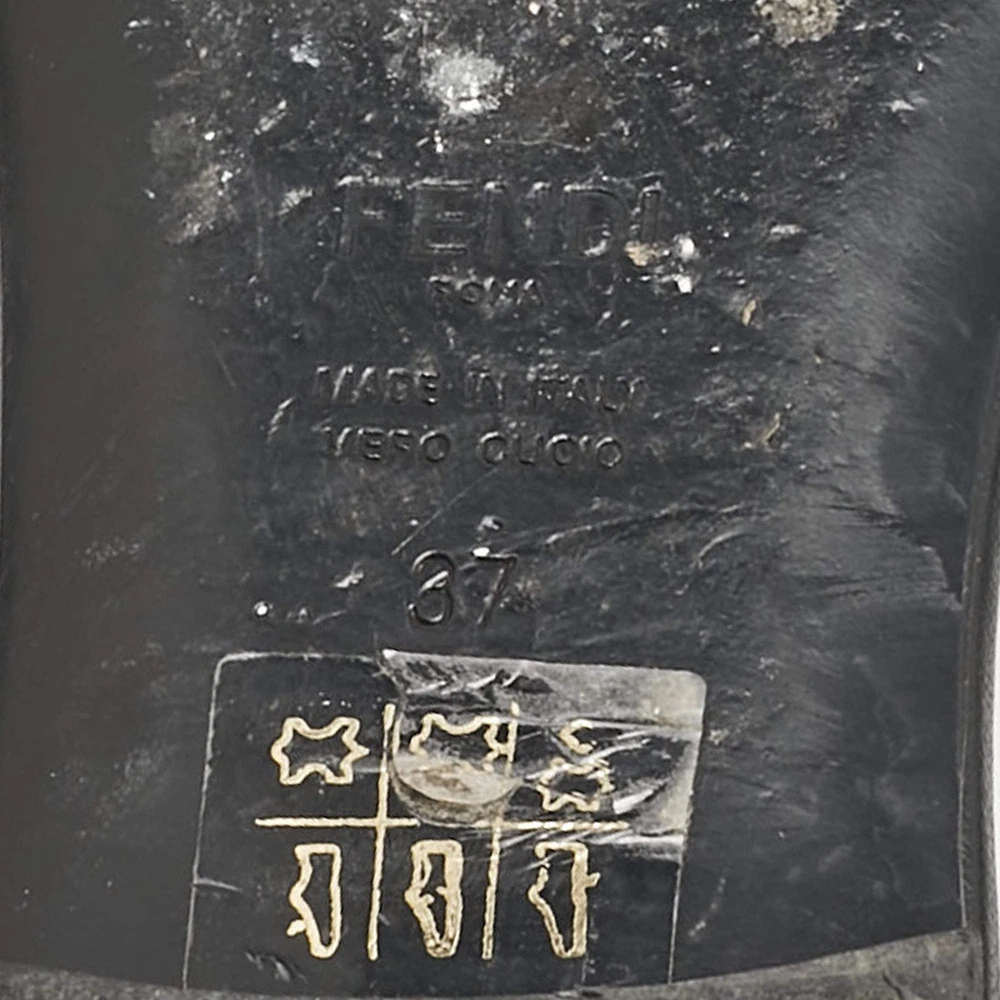 FENDI
ROMA
MADE IN ITALY
VERO CUOIO
37